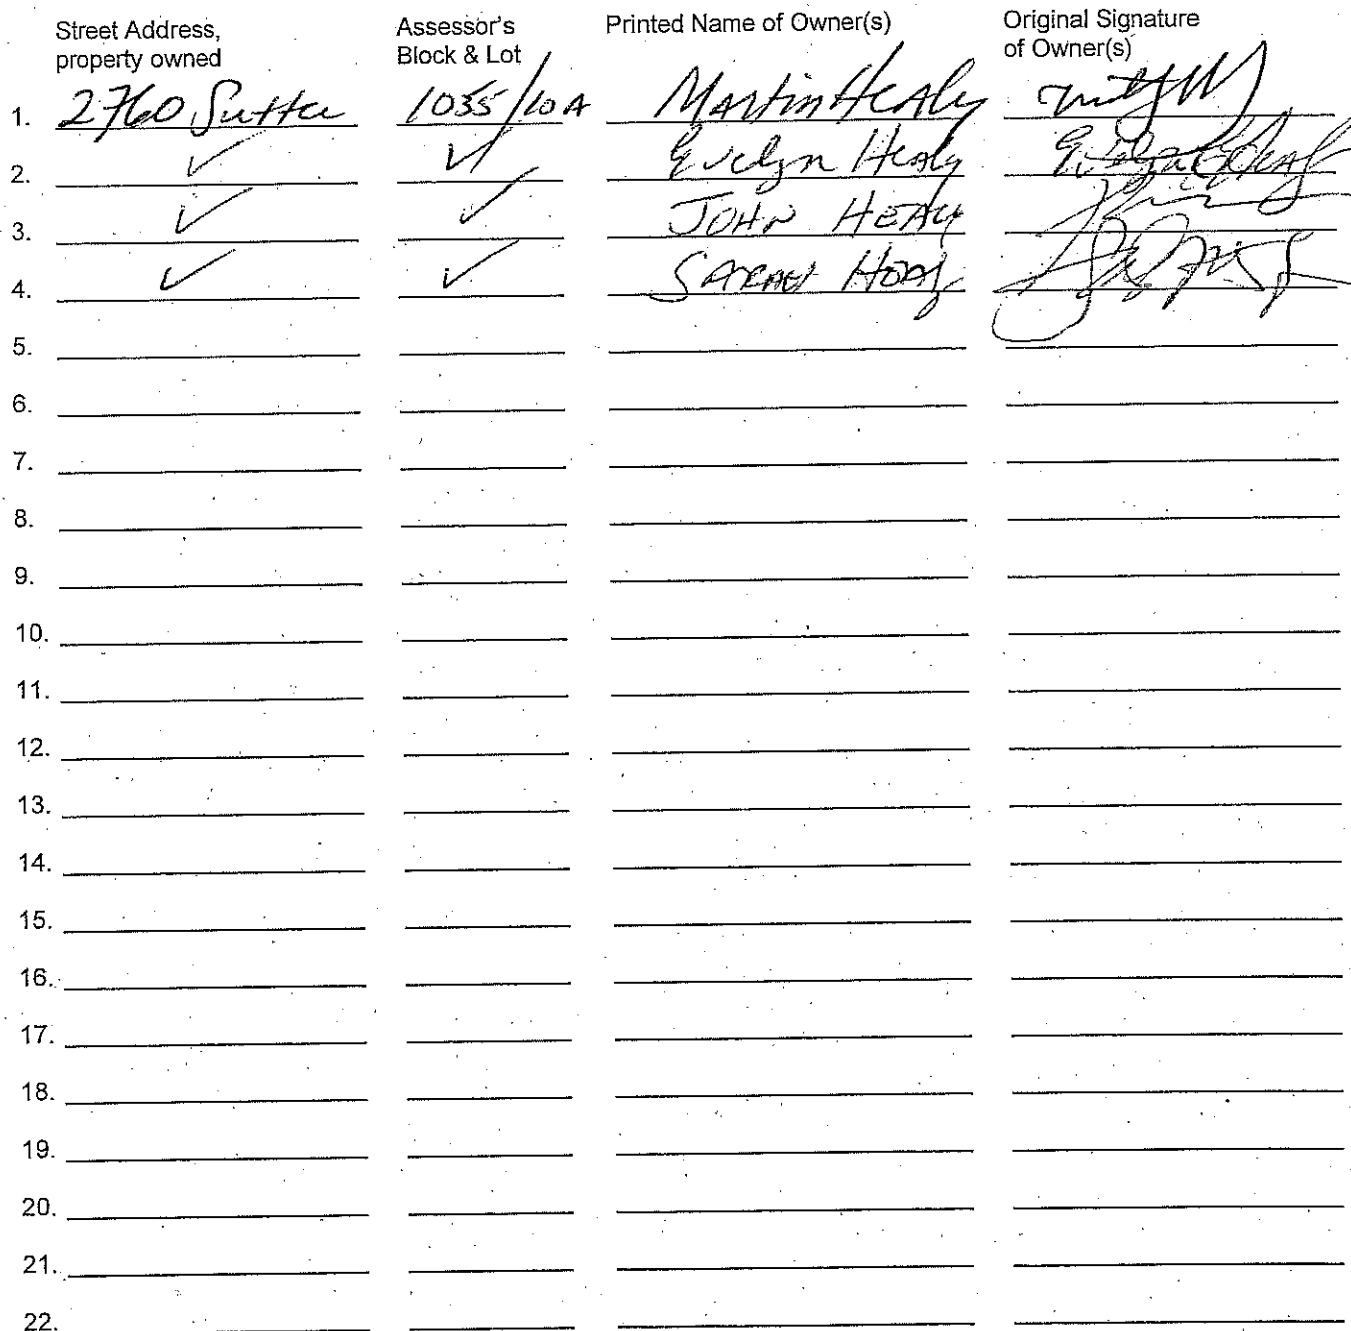 Street Address, property owned Assessor's Block & Lot Printed Name of Owner(s) Original Signature of Owner(s)
1. 2760 Sutter 1035/10A Martin Healy
2. ✓ ✓ Evelyn Healy
3. ✓ ✓ JOHN HEALY
4. ✓ ✓ SARAH
5.
6.
7.
8.
9.
10.
11.
12.
13.
14.
15.
16.
17.
18.
19.
20.
21.
22.